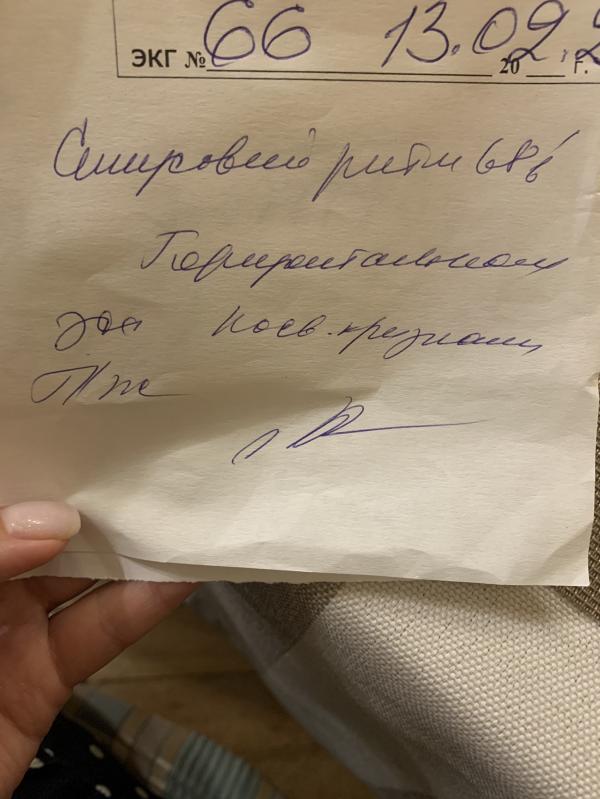 ЭКГ № 66 13.02.2
20 г.
Синусовый ритм 68 в '
Горизонтальная
эос Косв. признаки
ГПЖ